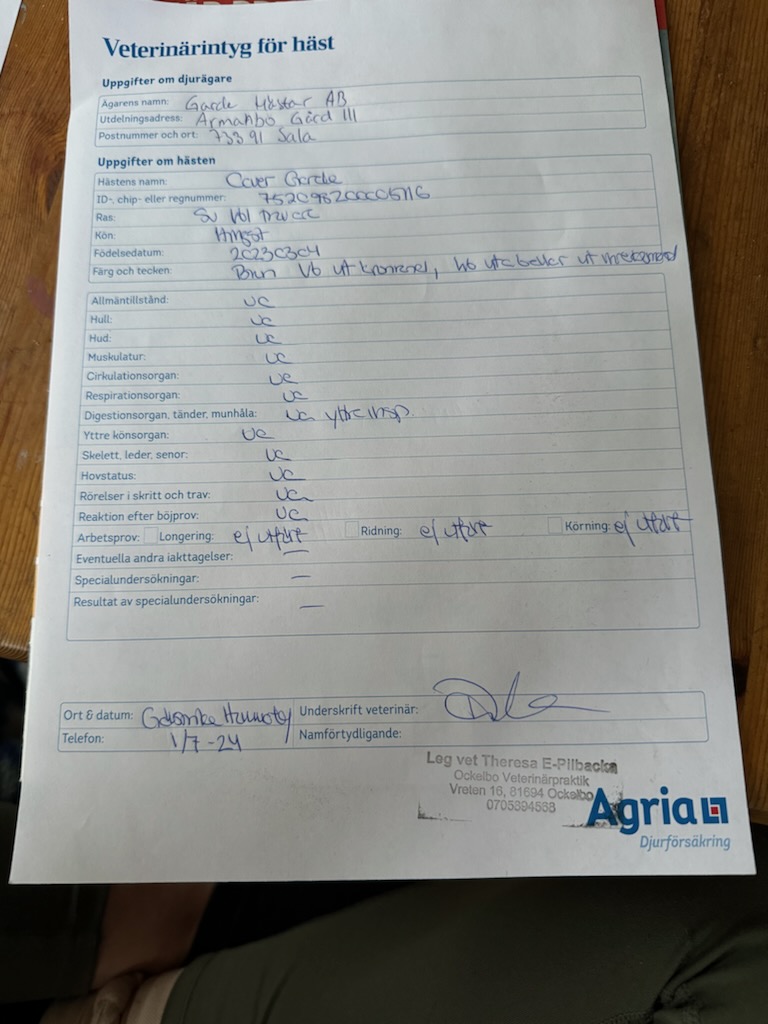 Veterinärintyg för häst
Uppgifter om djurägare
Ägarens namn: Garde Hästar AB
Utdelningsadress: Armanbo Gård 111
Postnummer och ort: 733 91 Sala
Uppgifter om hästen
Hästens namn: Garde
ID-, chip- eller regnummer:
Ras: Sv Vbl Travare
Kön: Hingst
Födelsedatum: 20230304
Färg och tecken: Brun Vb vt kronrand, hb vt
Allmäntillstånd: ua
Hull: ua
Hud: ua
Muskulatur: ua
Cirkulationsorgan: ua
Respirationsorgan: ua
Digestionsorgan, tänder, munhåla: ua yttre insp.
Yttre könsorgan: ua
Skelett, leder, senor: ua
Hovstatus: ua
Rörelser i skritt och trav: ua
Reaktion efter böjprov: ua
Arbetsprov: Longering: ej utfört Ridning: ej utfört Körning: ej utfört
Eventuella andra iakttagelser: —
Specialundersökningar: —
Resultat av specialundersökningar: —
Ort & datum: Underskrift veterinär:
Telefon: 1/7-24 Namförtydligande:
Leg vet Theresa E-Pilbacka
Ockelbo Veterinärpraktik
Vreten 16, 81694 Ockelbo
0705394568
Agria
Djurförsäkring